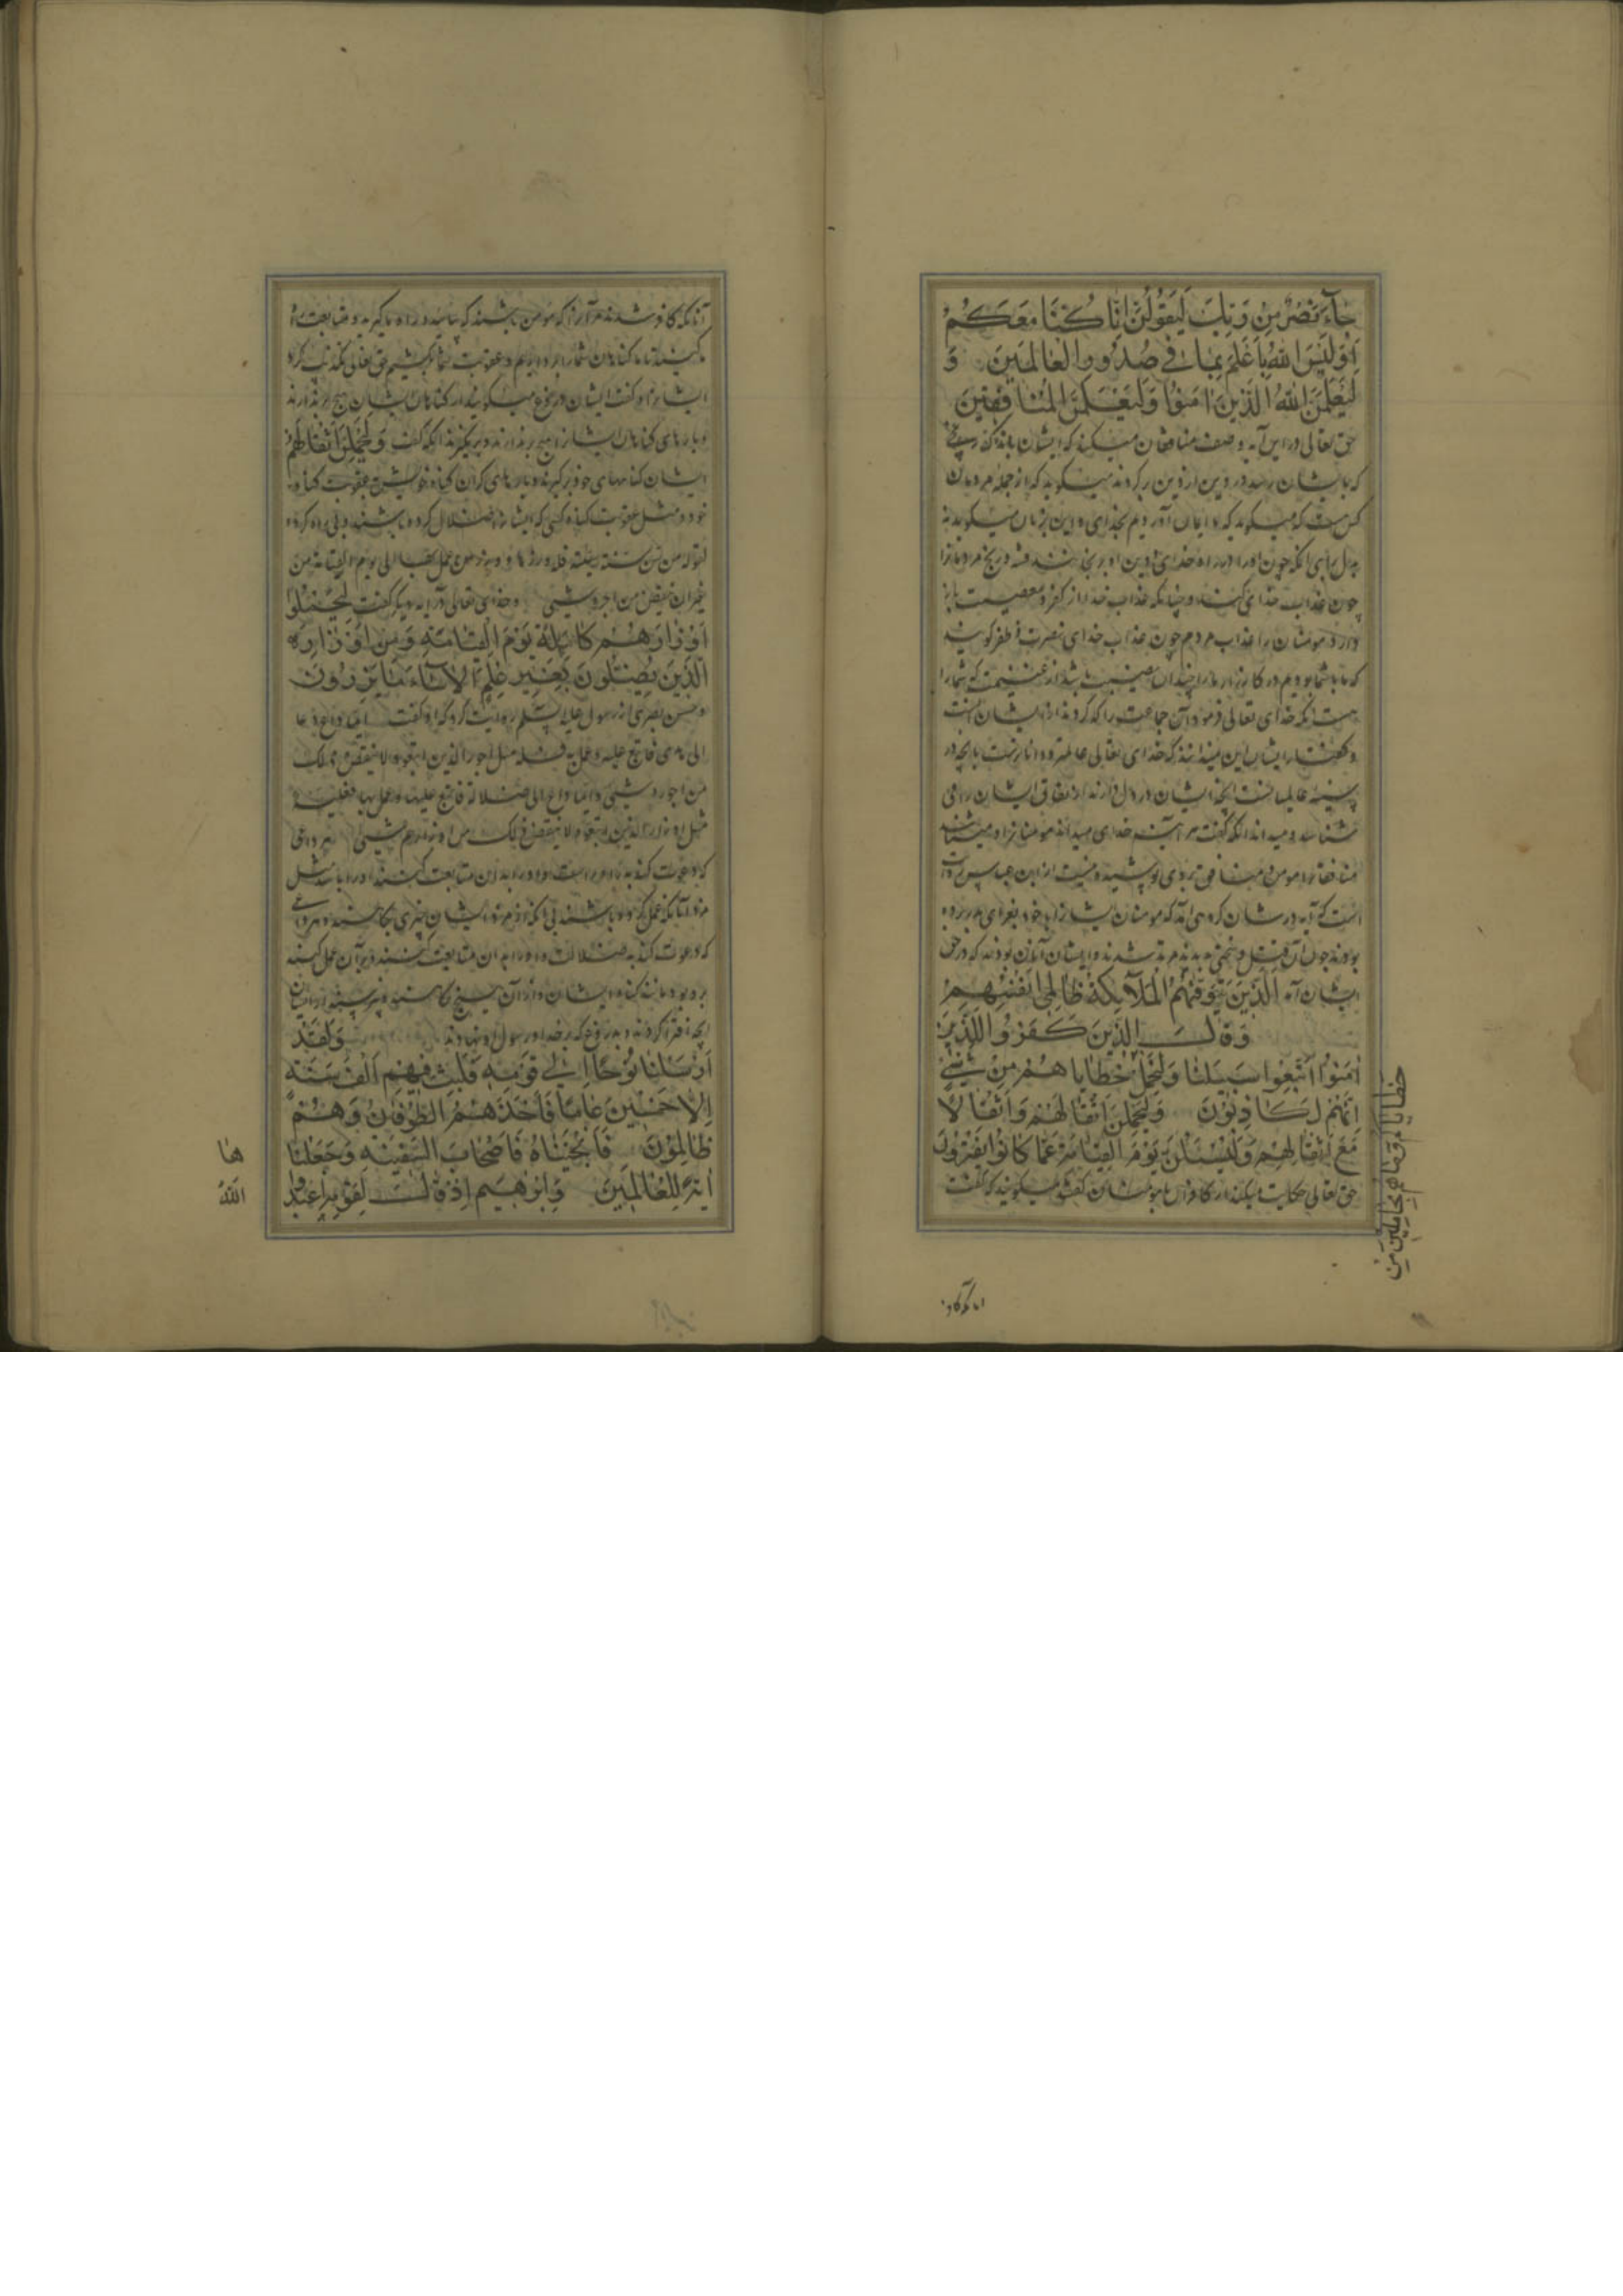 جاء نصر من ربك ليقولن انا كنا معكم
اوليس الله باعلم بما في صدور العالمين و
ليعلمن الله الذين امنوا وليعلمن المنافقين
حق تعالی در این آیه وصف منافقان میکند که ایشان
که بایشان رسد در دین از دین برگردند میگوید که از جمله مردمان
کس هست که میگوید که ما ایمان آوردیم بخدای و این بزبان میگوید نه
بدل
چون عذاب خدای
مومنان را عذاب مردم چون عذاب خدای نصرت و ظفر
که ما با شما بودیم در کارزار ما را نصیب باشد از غنیمت که شما را
هست آنکه خدای تعالی فرمود
ایشان این میندانند که خدای تعالی عالمتر و داناترست بانچه در
سینه عالمیانست آنچه ایشان در دل دارند از نفاق ایشان را می
شناسد و میداند آنکه گفت هر آینه خدای میداند مومنانرا و میشناسد
منافقانرا پوشیده نیست از ابن عباس روایت
است که آیه در شان گروهی آمد که مومنان ایشانرا با خود بغزای بدر برده
بودند چون مرتد شدند و ایشان آنان بودند که در حق
ایشان آمد الذين تتوفيهم الملآئكة ظالمي انفسهم
وقال الذين كفروا للذين
امنوا اتبعوا سبيلنا ولنحمل خطاياهم من شيئ
انهم لكاذبون وليحملن اثقالهم واثقالا
مع اثقالهم وليسئلن يوم القيامة عما كانوا يفترون
حق تعالی حکایت میکند از کافران با مومنان گفتند میگویند که گفت
خطاياكم وما هم بحاملين من
آنانکه کافر شدند مر آنرا که مومن باشند که بیایید و راه ما گیرید و متابعت ما
کنید تا ما گناهان شما را برداریم و عقوبت شما بکشیم حق تعالی تکذیب کرد
ایشانرا و گفت ایشان دروغ میگویند از گناهان ایشان هیچ برندارند
و بارهای گناهان ایشانرا برندارند و برنگیرند آنکه گفت وليحملن اثقالهم
ایشان گناههای خود برگیرند و بارهای گران گناه خویش عقوبت گناه
خود و مثل عقوبت گناه کسی که ایشانرا اضلال کرده باشند و بی راه کرده
لقوله من سن سنة سيئة فله وزرها و وزر من عمل بها الى يوم القيامة من
غير ان ينقص من اجره شيئ و خدای تعالی در آیه دیگر گفت ليحملوا
اوزارهم كاملة يوم القيامة ومن اوزار
الذين يضلونهم بغير علم الا سآء ما يزرون
و حسن بصری از رسول علیه السلم روایت کرد که او گفت ايما داع دعا
الى هدى فاتبع عليه وعمل به فله مثل اجور الذين اتبعوه ولا ينقص ذلك
من اجورهم شيئ وايما داع الى ضلالة فاتبع عليها وعمل بها فعليه
مثل اوزار الذين اتبعوه لا ينقص ذلك من اوزارهم شيئ هر داعی
که دعوت کند به راه راست و او را بدان متابعت کنند او را باشد مثل
مزد آنانکه عمل کرده باشند بی آنکه از مزد ایشان چیزی بکاهند و هر داعی
که دعوت کند به ضلالت و او را بدان متابعت کنند و بر آن عمل کنند
بر او بود مانند گناه ایشان و از آن هیچ نکاهند و بپرسند از ایشان
آنچه افترا کردند و دروغ که بر خدا و رسول او نهادند ولقد
ارسلنا نوحا الى قومه فلبث فيهم الف سنة
الا خمسين عاما فاخذهم الطوفان وهم
ظالمون فانجيناه واصحاب السفينة وجعلنا
اية للعالمين وابرهيم اذ قال لقومه اعبدوا
ها
الله